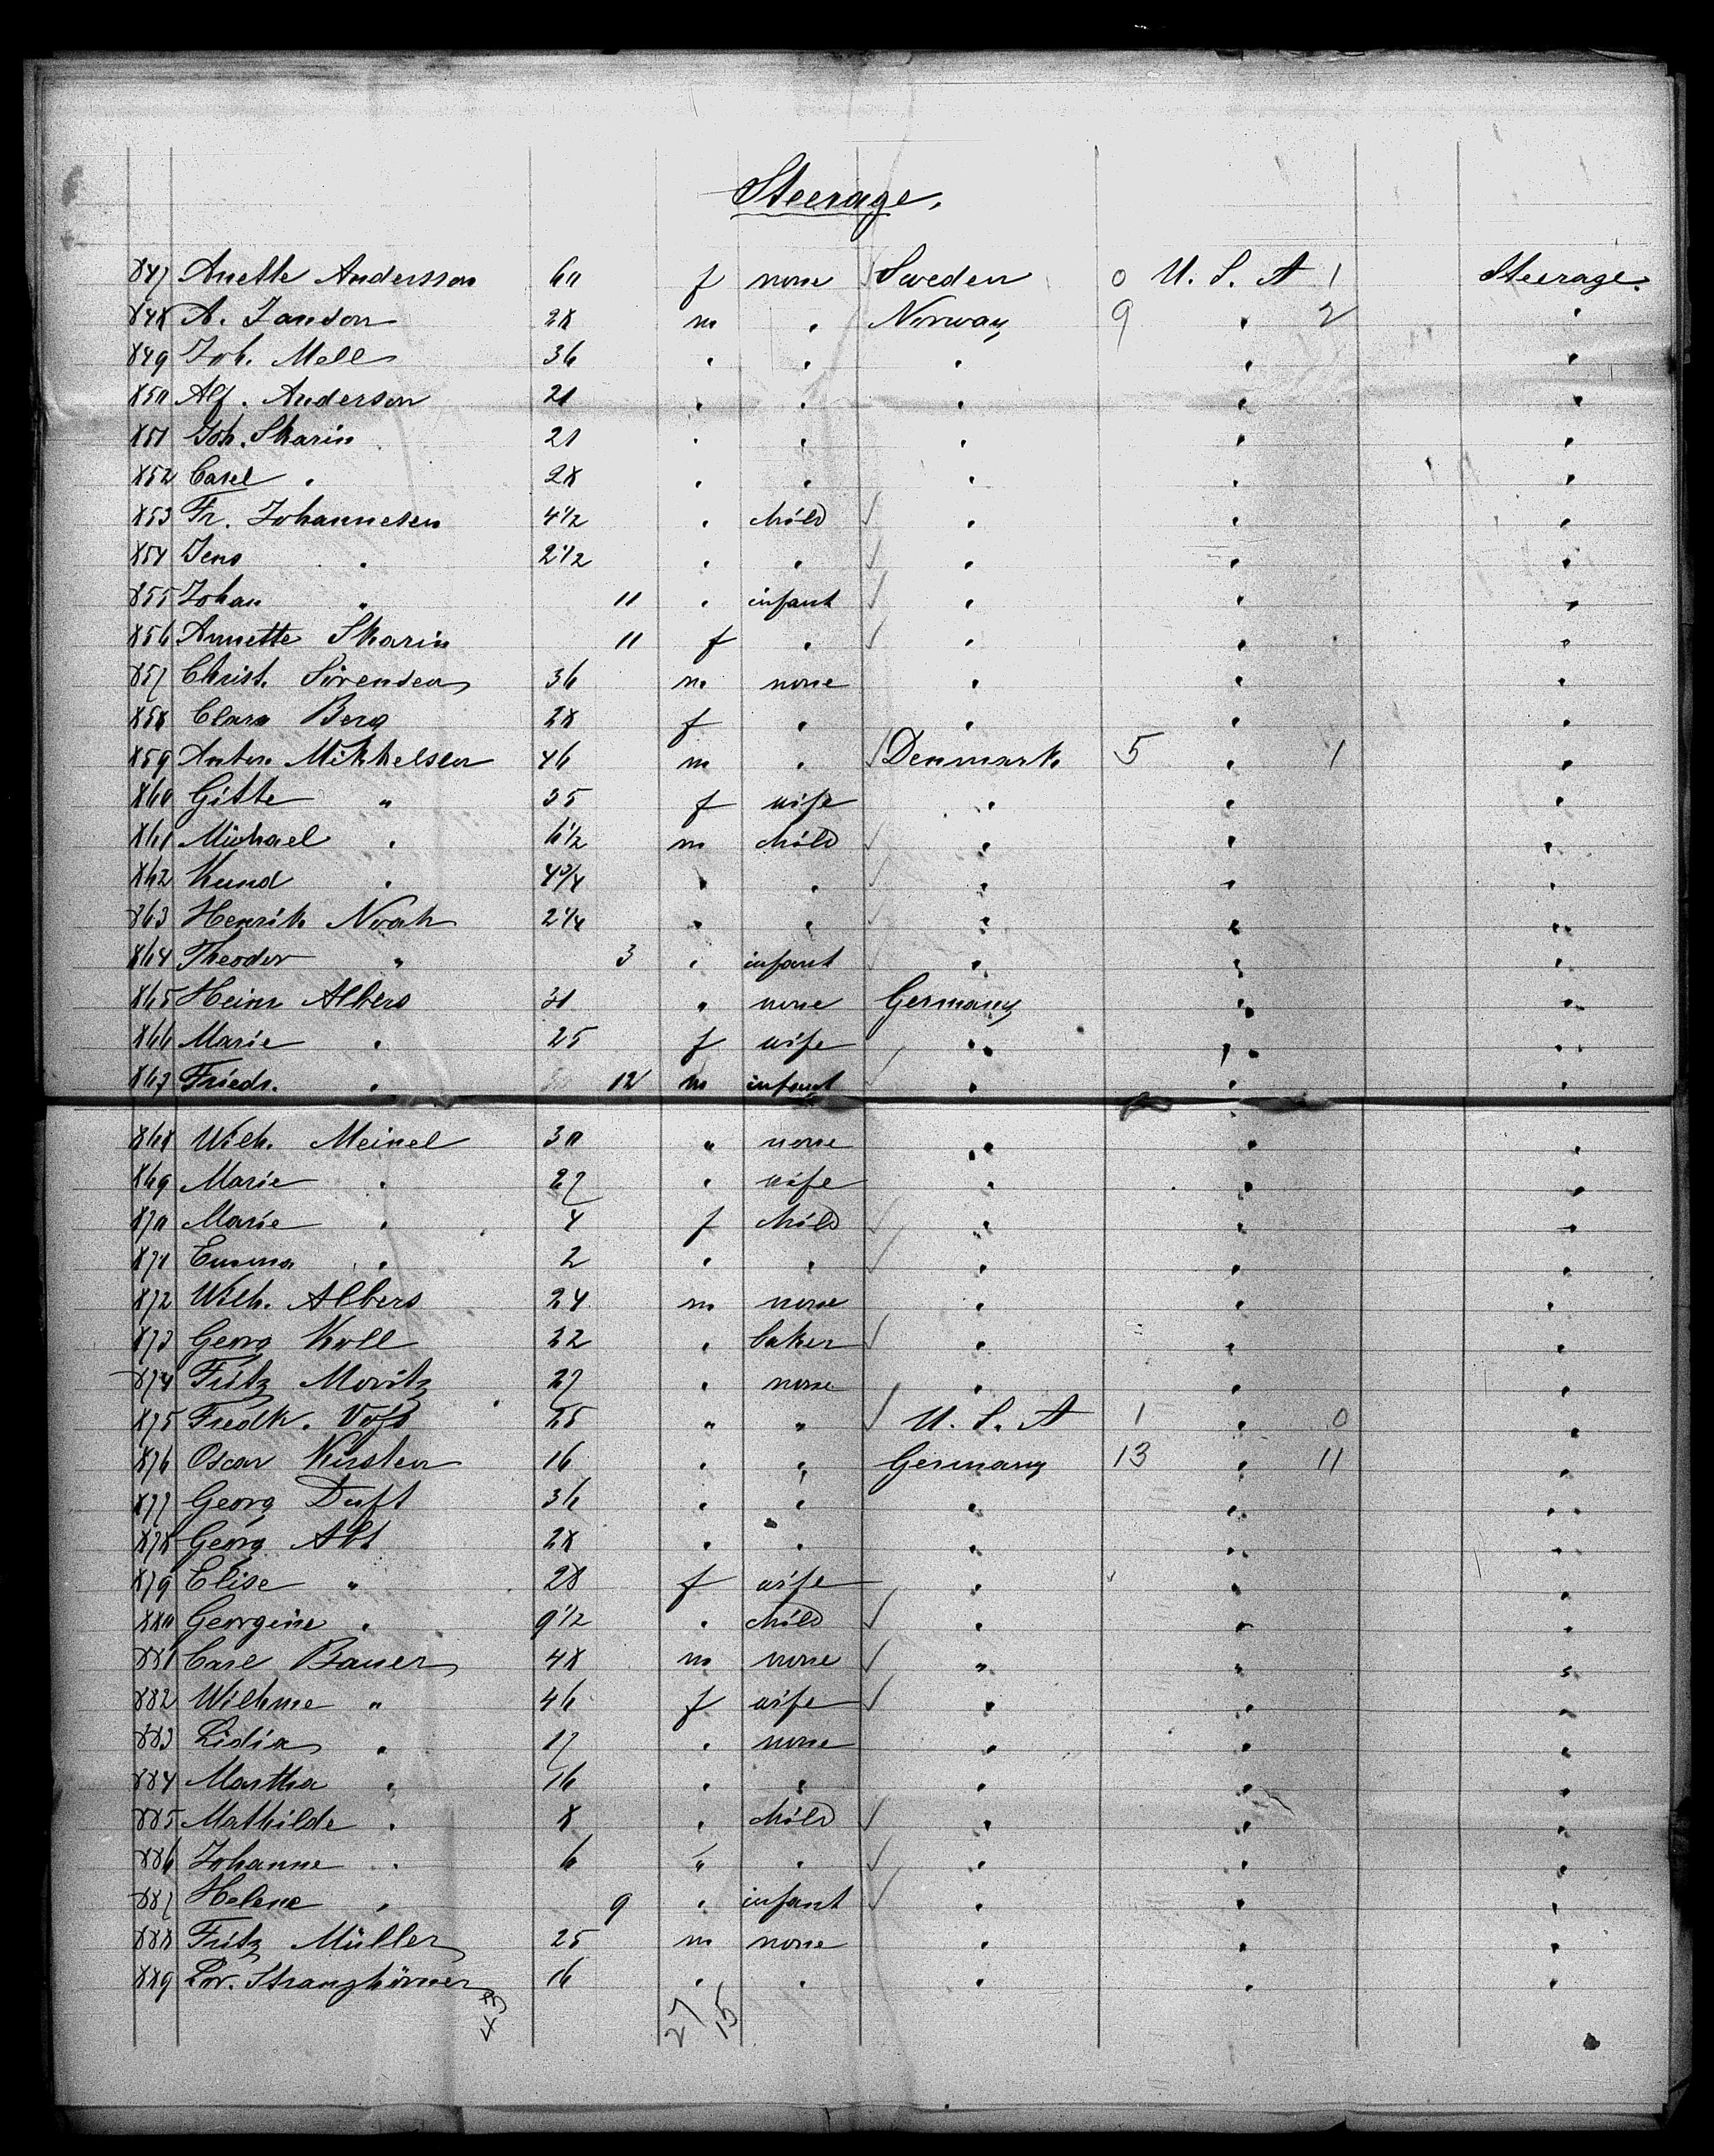 Steerage.
847 Anette Andersson 60 f none Sweden 0 U. S. A 1 Steerage.
848 A. Janson 28 m " Norway 9 " 2 "
849 Joh. Mell 36 " " " " "
850 Alf. Anderson 21 " " " " "
851 Joh. Skarin 21 " " " " "
852 Carl " 28 " " " " "
853 Fr. Johannesen 4 1/2 " child " " "
854 Jens " 2 1/2 " " " " "
855 Johan " 11 " infant " " "
856 Annette Skarin 11 f " " " "
857 Christ. Sörensen 36 m none " " "
858 Clara Berg 28 f " " " "
859 Anton Mikkelsen 46 m " Denmark 5 " 1 "
860 Gitte " 35 f wife " " "
861 Michael " 6 1/2 m child " " "
862 Kund " 4 3/4 " " " " "
863 Henrik Noah 2 1/4 " " " " "
864 Theodor " 3 " infant " " "
865 Heinr Albers 31 " none Germany " "
866 Marie " 25 f wife " " "
867 Friedr. " 12 m infant " " "
868 Wilh. Meinel 30 " none " " "
869 Marie " 27 " wife " " "
870 Marie " 4 f child " " "
871 Emma " 2 " " " " "
872 Wilh. Albers 24 m none " " "
873 Georg Koll 22 " baker " " "
874 Fritz Moritz 27 " none " " "
875 Fredk. 25 " " U. S. A 1 " 0 "
876 Oscar Kirsten 16 " " Germany 13 " 11 "
877 Georg Duft 36 " " " " "
878 Georg Abt 28 " " " " "
879 Elise " 28 f wife " " "
880 Georgine " 9 1/2 " child " " "
881 Carl Bauer 48 m none " " "
882 Wilhme " 46 f wife " " "
883 Lidia " 17 " none " " "
884 Martha " 16 " " " " "
885 Mathilde " 8 " child " " "
886 Johanne " 6 " " " " "
887 Helene " 9 " infant " " "
888 Fritz Müller 25 m none " " "
889 Lor. 16 " " " " "
43 27 15